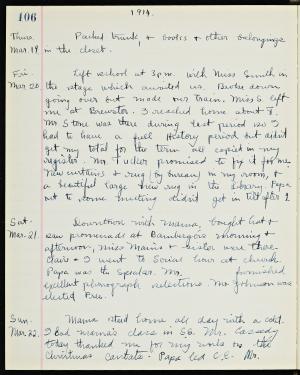 106
1914.
Thurs.
Mar. 19
Packed trunk, & books & other belongings
in the closet.
Fri.
Mar. 20
Left school at 3 p.m. with Miss Smith in
the stage which awaited us. Broke down
going over but made our train. Miss S. left
me at Brewster. I reached home about 8.
Mr. Stone was there during last period so I
had to have a full History period but didn't
get my total for the term all copied in my
register. Mr. Tucker promised to fix it for me.
New curtains & rug (by bureau) in my room, &
a beautiful large new rug in the library. Papa
out to some meeting didn't get in till after 1
Sat.
Mar. 21.
Downtown with Mama, bought hat &
saw promenade at Bambergers morning &
afternoon, Miss & sister were there.
& I went to Social hour at church.
Papa was the Speaker. Mr. furnished
excellent phonograph selections. Mr. Johnson was
elected Pres.
Sun.
Mar. 22.
Mama stayed home all day with a cold.
I had mama's class in S.S. Mr. Cassedy
today thanked me for my work on the
Christmas Cantata. Papa led C.E. Mr.